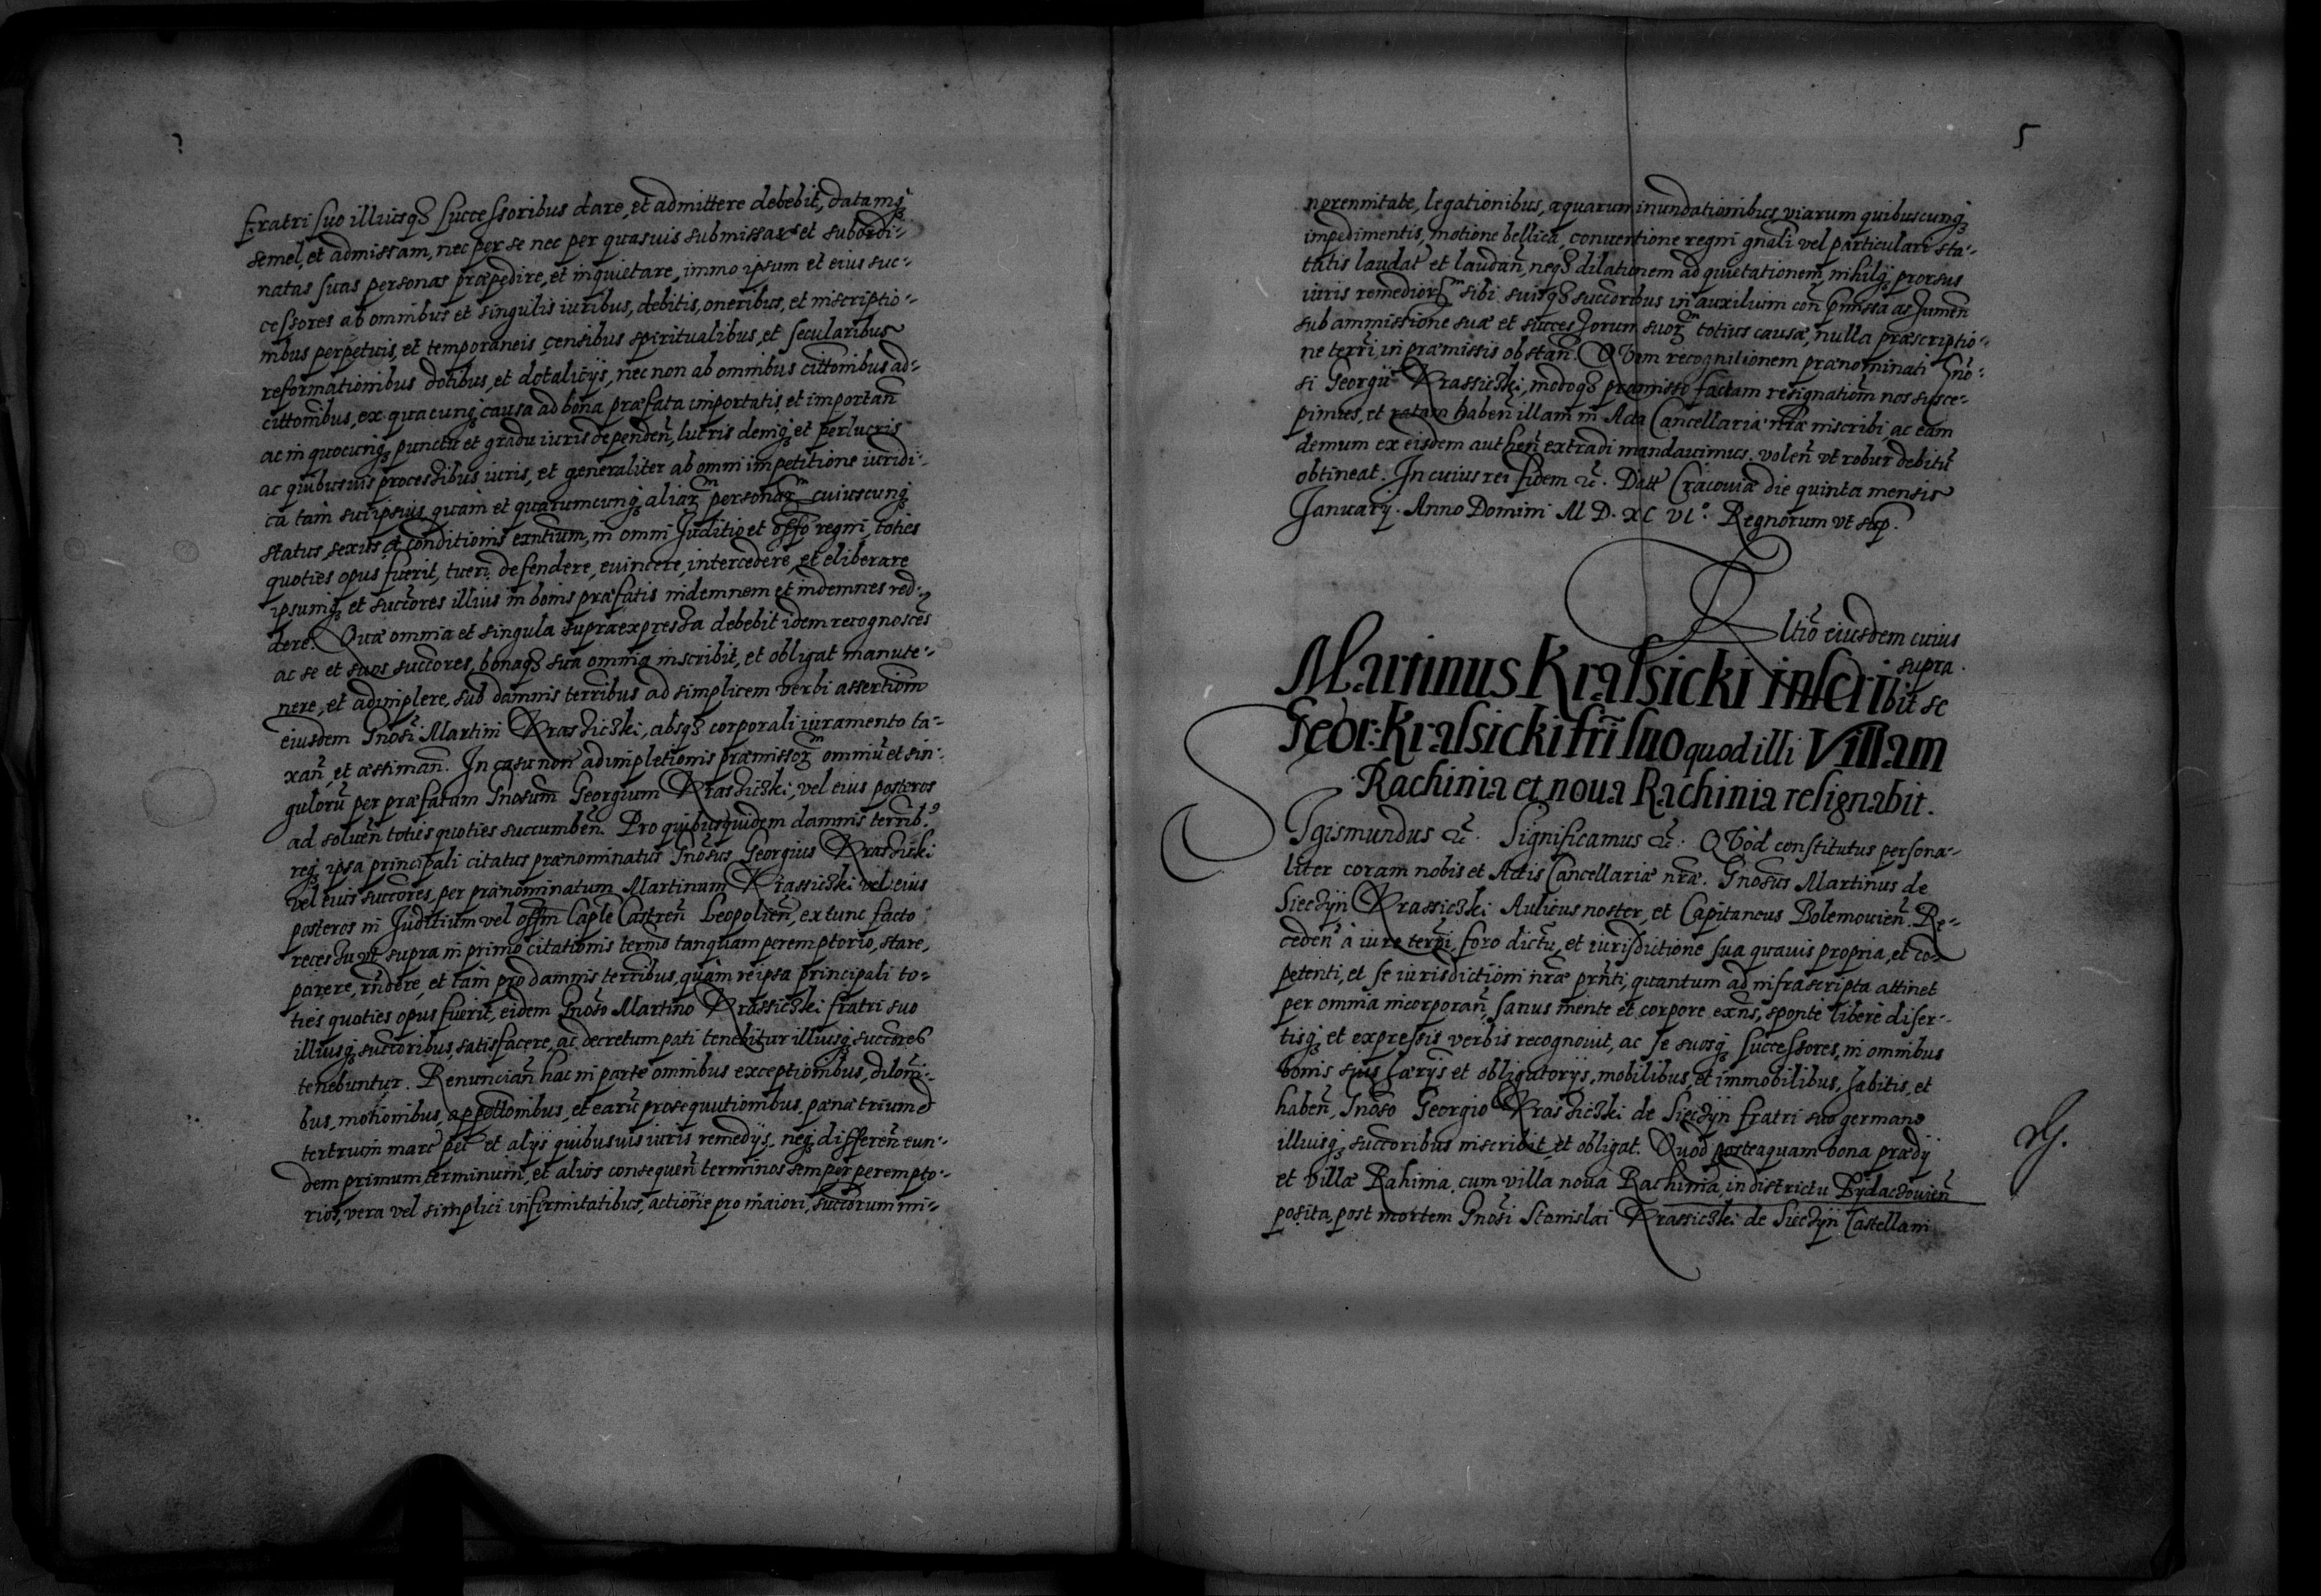 fratri suo illiusq₃ successoribus dare, et admittere debebit, datamq₃
semel, et admissam, nec per se nec per quasuis submissas et subordi-
natas suas personas præpedire, et inquietare, immo ipsum et eius suc-
cessores ab omnibus et singulis iuribus, debitis, oneribus, et inscriptio-
nibus perpetuis, et temporaneis censibus spiritualibus, et secularibus
reformationibus dotibus, et dotalicijs, nec non ab omnibus cittõnibus ad-
cittõnibus, ex quacunq₃ causa ad bona præfata importatis et importañ
ac in quocunq₃ punctu et gradu iuris dependeñ, lucris deniq₃ et perlucris
ac quibusuis processibus iuris, et generaliter ab omni impetitione iuridi-
ca tam sui ipsius quam et quarumcunq₃ aliarᵐ personarᵐ cuiuscunq₃
status, sexus et conditionis exñtium, in omni Juditio et offõ regni, toties
quoties opus fuerit, tueri, defendere, euincere, intercedere, et eliberare
ipsumq₃ et succores illius in bonis præfatis indemnem et indemnes red-
dere. Quæ omnia et singula supraexpressa debebit idem recognosceñs
ac se et suos succores, bonaq₃ sua omnia inscribit, et obligat manute-
nere, et adimplere, sub damnis terribus ad simplicem verbi assertiom̃
eiusdem Gnosi Martini Krassiczki, absq₃ corporali iuramento ta-
xañ, et æstimañ. In casu non adimpletionis præmissorᵐ omniũ et sin-
gulorũ per præfatam Gnosum Georgium Krassiczki, vel eius posteros
ad soluеñ toties quoties succumbeñ. Pro quibusquidem damnis terrib⁹
req₃ ipsa principali citatus prænominatus Gnosus Georgius Krassicki
vel eius succores, per prænominatum Martinum Krassiczki vel eius
posteros in Juditium vel offm̃ Caple Castreñ Leopolieñ, ex tunc facto
recessu ut supra in primo citationis termõ tanquam peremptorio, stare,
parere, rñdere, et tam pro damnis terribus, quàm re ipsa principali to-
ties quoties opus fuerit, eidem Gnoso Martino Krassiczki fratri suo
illiusq₃ succoribus satisfacere, ac decretum pati tenebitur illiusq₃ succores
tenebuntur. Renunciañ hac in parte omnibus exceptionibus, dilom̃-
bus, motionibus, appellõnibus, et earũ prosequutionibus, pæna trium
tertrium marc pec et alijs quibusuis iuris remedijs, neq₃ differeñ eun-
dem primum terminum, et alios consequeñ terminos semper perempto-
rios, vera vel simplici infirmitatibus, actione pro maiori, succorum mi-
5
norennitate, legationibus, aquarum inundationibus, viarum quibuscunq₃
impedimentis, motione bellica, conuentione regni gñali vel particulari sta-
tutis laudat et laudañ, neq₃ dilationem ad quietationem, nihilq₃ prorsus
iuris remediorᵐ sibi suisq₃ succoribus in auxilium coñ pmissa assumeñ
sub ammissione suæ et successorum suorᵐ totius causæ, nulla præscriptio-
ne terri in præmissis obstañ. Quam recognitionem prænominati Gno-
si Georgij Krassiczki, modoq₃ præmisso factam resignatiom̃ nos susce-
pimus, et ratam habeñ illam in Acta Cancellariæ nræ inscribi, ac eam
demum ex eisdem autheñ extradi mandauimus. voleñ vt robur debitũ
obtineat. In cuius rei fidem &c̃. Datt Cracouiæ die quinta mensis
Januarij. Anno Domini M D. XC VI°. Regnorum vt sup.
Rltio eiusdem cuius
supra.
Martinus Krassicki inscribit se
Geor: Krassicki fri suo quod illi Villam
Rachinia et noua Rachinia resignabit.
Sigismundus &c̃. Significamus &c̃. Quod constitutus persona-
liter coram nobis et Actis Cancellariæ nræ. Gnosus Martinus de
Sieczyn Krassiczki Aulicus noster, et Capitaneus Bolemouieñ. Re-
cedeñ à iure terri, foro dictu, et iurisdictione sua quauis propria, et co-
petenti, et se iurisdictioni nræ prñti, quantum ad infrascripta attinet
per omnia incorporañ, sanus mente et corpore exñs, sponte liberè diser-
tisq₃ et expressis verbis recognouit, ac se suosq₃ successores, in omnibus
bonis suis hærijs et obligatorijs, mobilibus, et immobilibus, habitis, et
habeñ, Gnoso Georgio Krassiczki de Sieczyn fratri suo germano
illiusq₃ succoribus inscribit, et obligat. Quod posteaquam bona prædij
et villæ Rahinia, cum villa noua Rachinia, in districtu Zydaczouieñ
posita, post mortem Gnosi Stanislai Krassiczki de Sieczyn Castellani